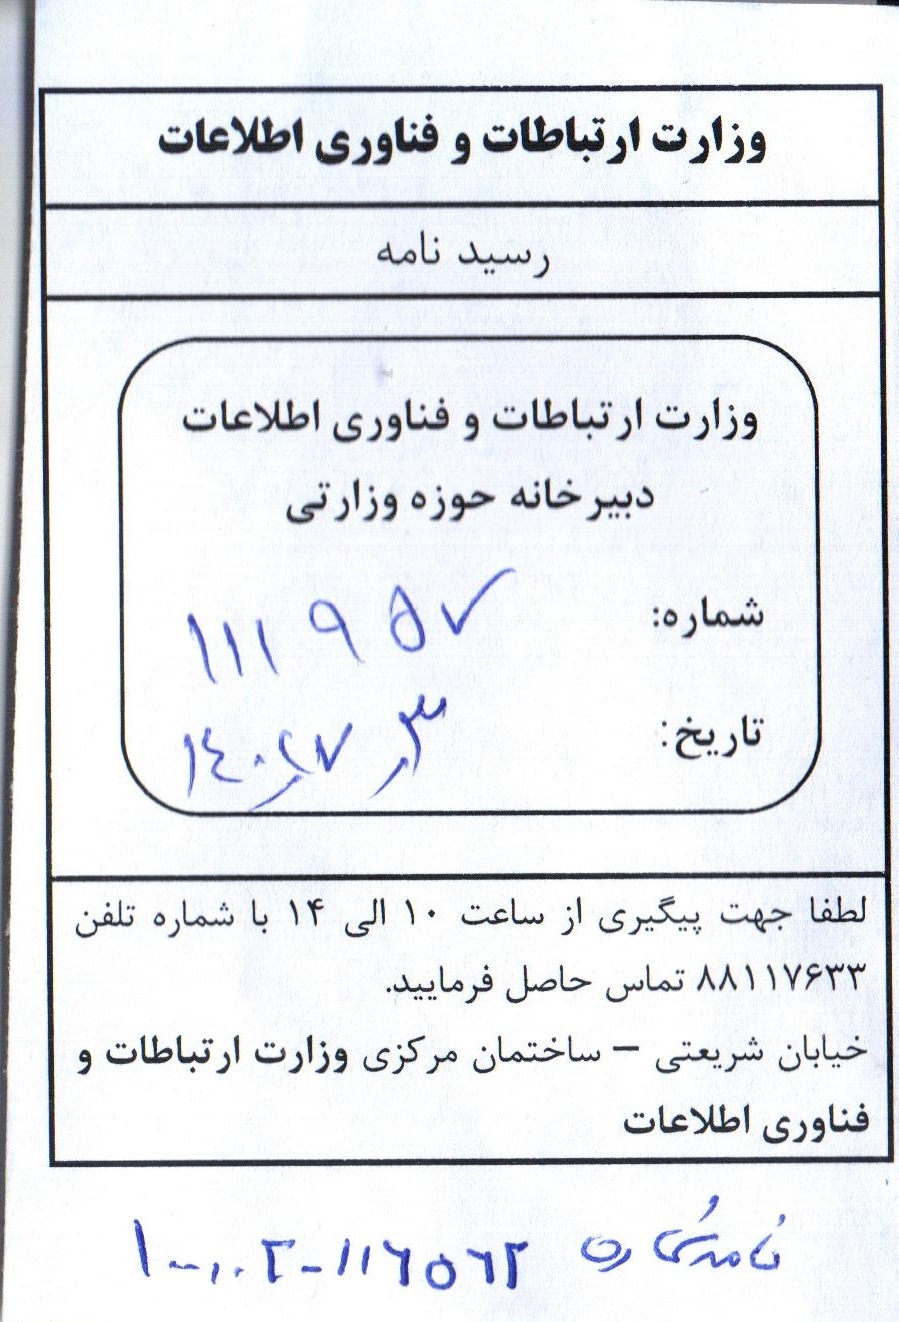 وزارت ارتباطات و فناوری اطلاعات
رسید نامه
وزارت ارتباطات و فناوری اطلاعات
دبیرخانه حوزه وزارتی
شماره: ۱۱۱۹۵۷
تاریخ:
لطفا جهت پیگیری از ساعت ۱۰ الی ۱۴ با شماره تلفن
۸۸۱۱۷۶۳۳ تماس حاصل فرمایید.
خیابان شریعتی – ساختمان مرکزی وزارت ارتباطات و
فناوری اطلاعات